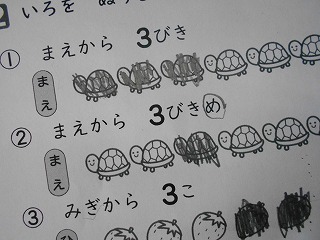 2 いろを ぬり
① まえから 3びき
まえ
② まえから 3びきめ
まえ
③ みぎから 3こ